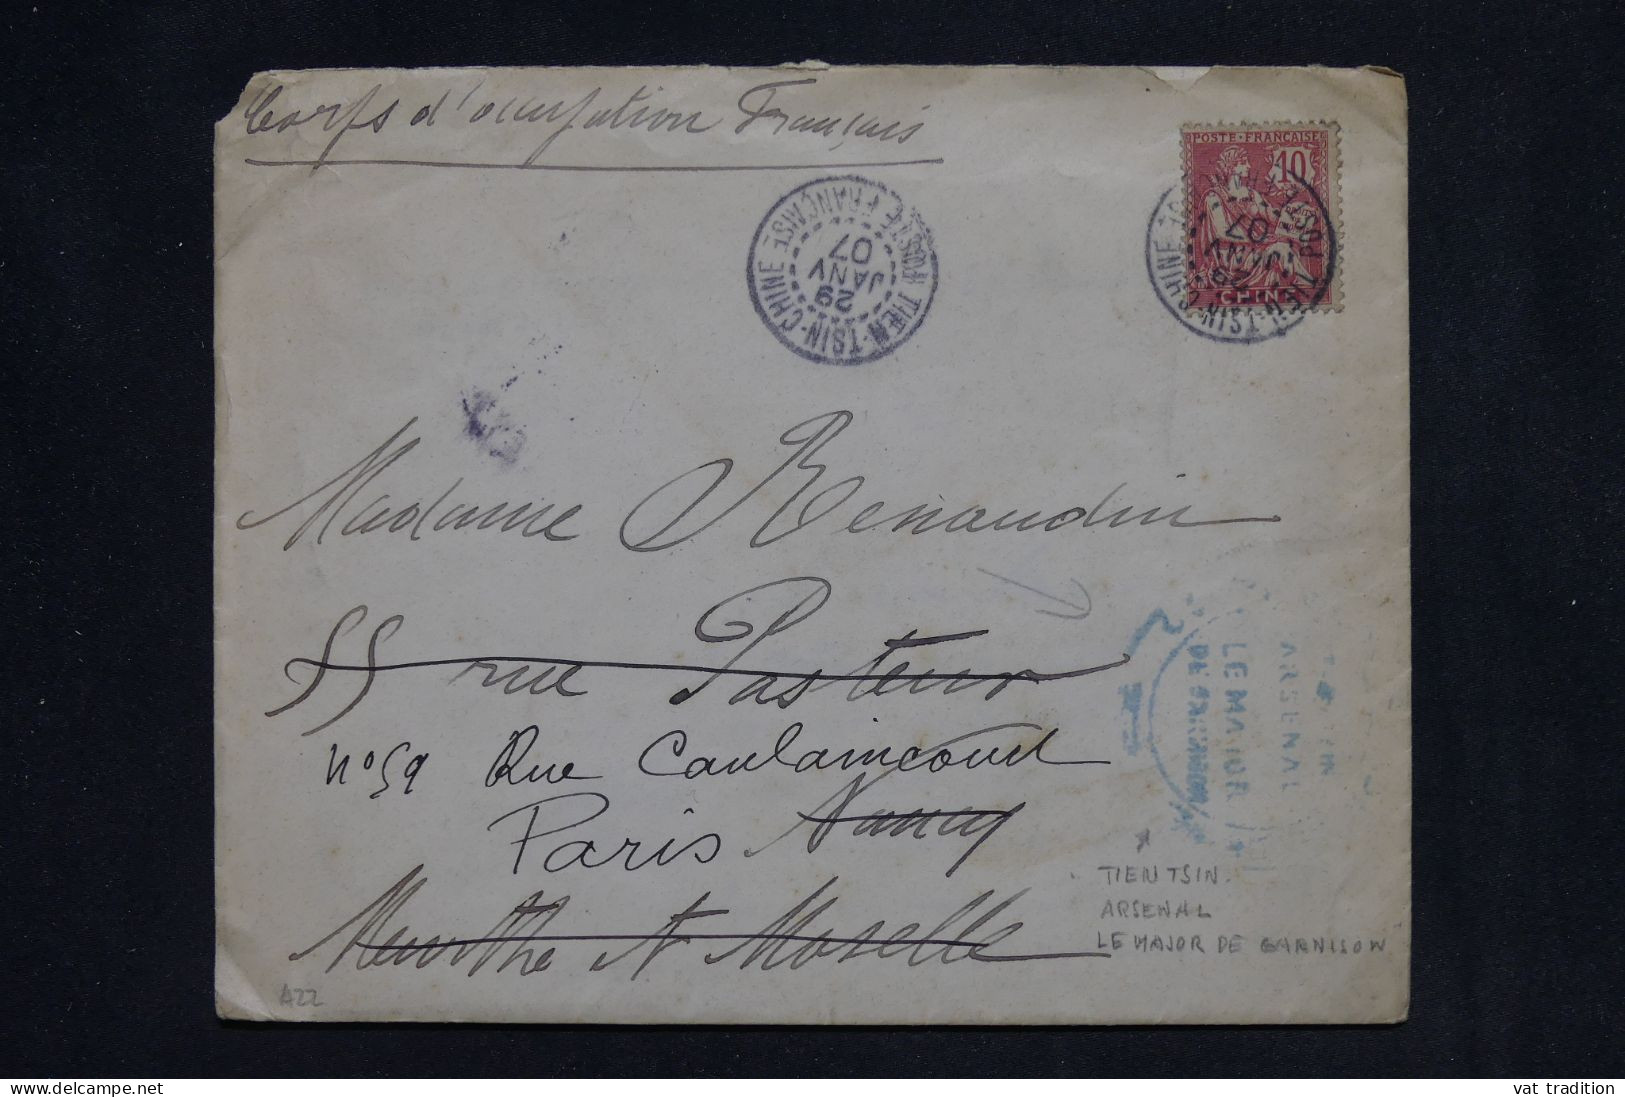 Corps d'occupation Français
POSTE FRANÇAISE
10
CHINE
TIEN-TSIN-CHINE
POSTE FRANÇAISE
29
JANV
07
TIEN-TSIN-CHINE
POSTE FRANÇAISE
29
JANV
07
Madame Renaudin
55 rue Pasteur
N° 59 Rue Caulaincourt
Paris Nancy
Meurthe et Moselle
ARSENAL
LE MAJOR
DE GARNISON
TIEN TSIN.
ARSENAL
LE MAJOR DE GARNISON
A22
delcampe.net
vat tradition